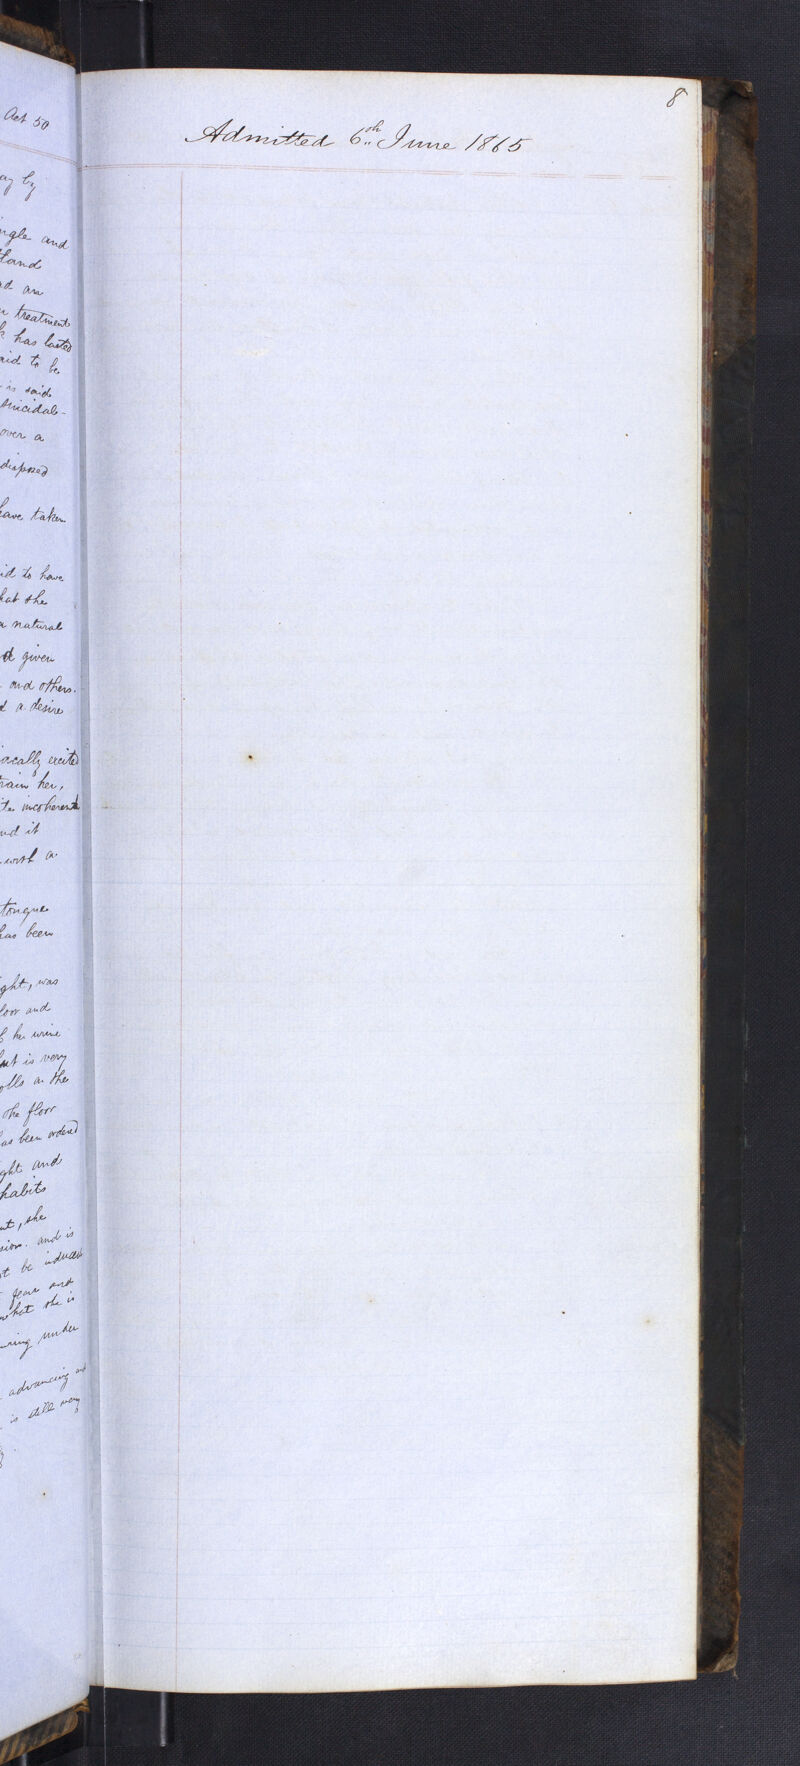 Aet 50
by
and
and an
treatment
has lasted
said to be
is said
suicidal-
over a
disposed
have taken
to have
that she
a natural
given
and others.
a desire
excited
her,
incoherent
and it
with a
tongue
has been
was
floor and
her urine
but is very
on the
the floor
has been ordered
and
habits
she
and is
be induced
fear and
what she is
under
advancing and
is still very
8
Admitted 6th June 1865